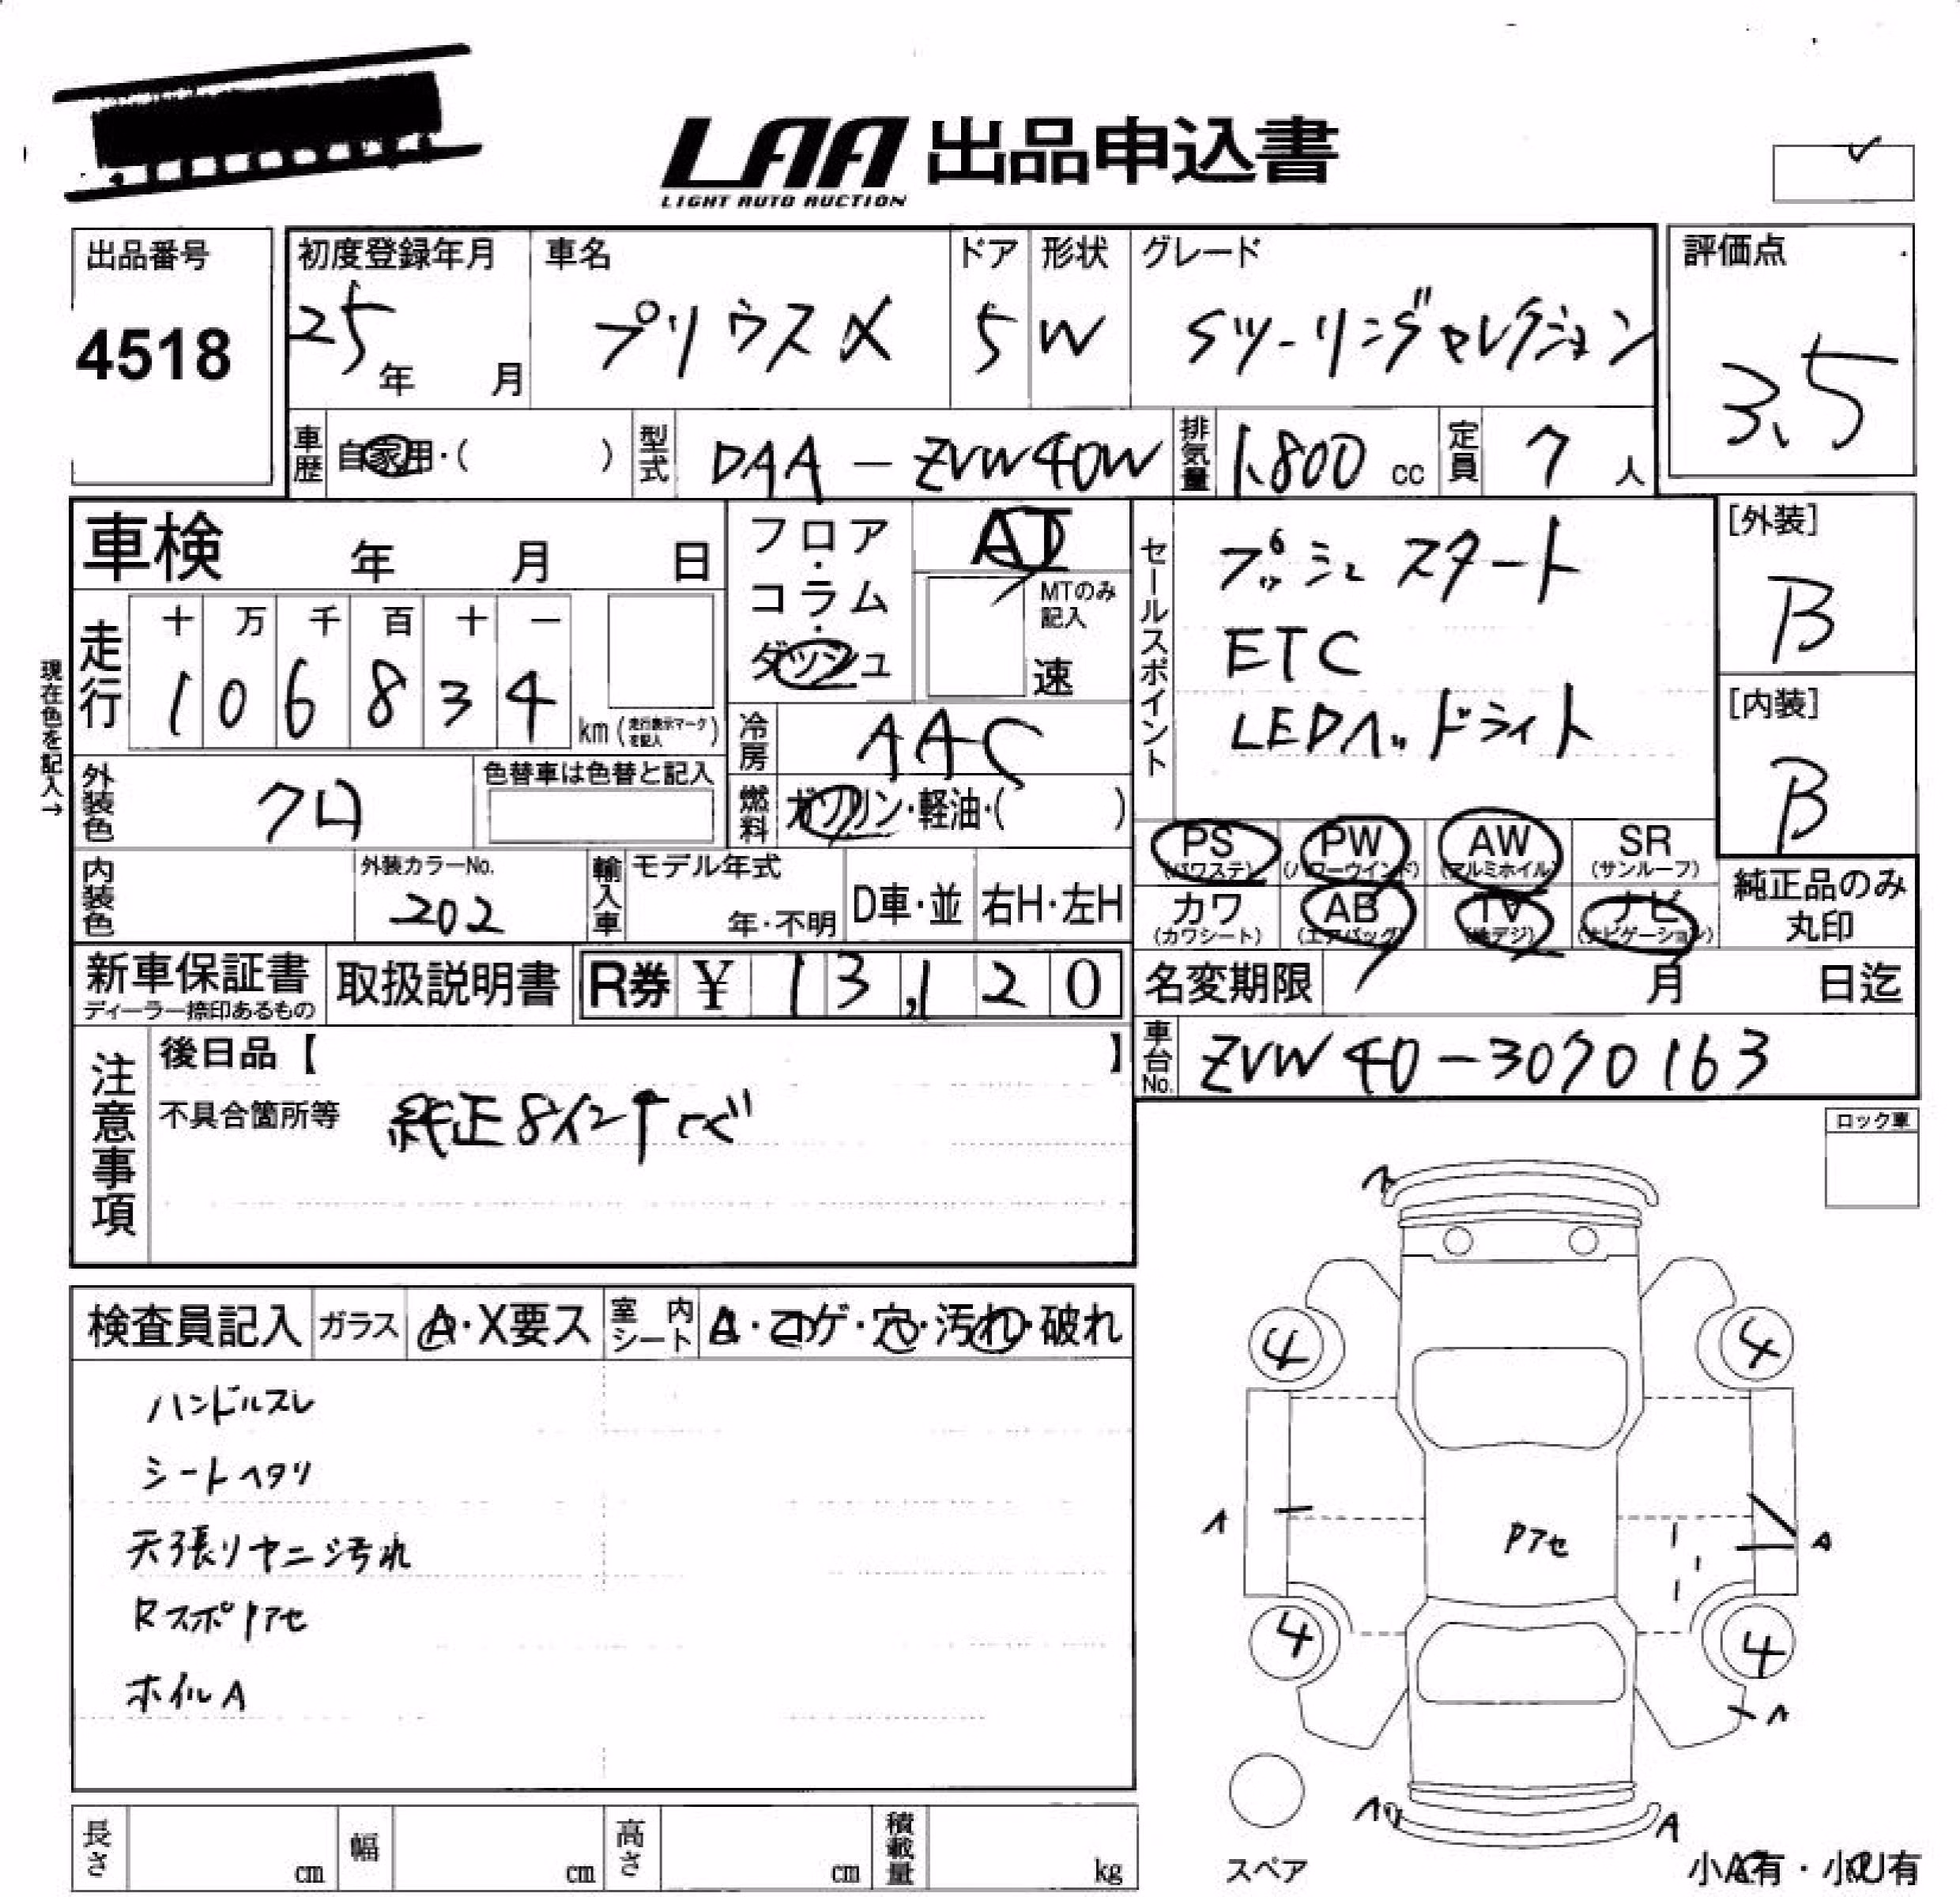 LAA 出品申込書
LIGHT AUTO AUCTION
出品番号
4518
初度登録年月
25年 月
車名
プリウスα
ドア
5
形状
W
グレード
Sツーリングセレクション
評価点
3.5
車歴
自家用・( )
型式
DAA-ZVW40W
排気量
1,800 cc
定員
7 人
車検 年 月 日
フロア・コラム・ダッシュ
AT
MTのみ記入
速
セールスポイント
プッシュスタート
ETC
LEDヘッドライト
[外装]
B
[内装]
B
現在色を記入→
走行
十 万 千 百 十 一
1 0 6 8 3 4
km(走行表示マークを記入)
冷房
AAC
燃料
ガソリン・軽油・( )
外装色
クロ
色替車は色替と記入
PS (パワステ)
PW (パワーウインド)
AW (アルミホイル)
SR (サンルーフ)
カワ (カワシート)
AB (エアバッグ)
TV (地デジ)
ナビ (ナビゲーション)
純正品のみ丸印
内装色
外装カラーNo.
202
輸入車
モデル年式
年・不明
D車・並
右H・左H
新車保証書
ディーラー捺印あるもの
取扱説明書
R券 ¥ 13,120
名変期限 月 日迄
車台No.
ZVW40-3070163
注意事項
後日品【 】
不具合箇所等
純正8インチナビ
ロック車
検査員記入
ガラス
A・X要ス
室内シート
A・コゲ・穴・汚れ・破れ
ハンドルスレ
シートヘタリ
天張りヤニ汚れ
Rスポイアセ
ホイルA
4
4
A
Pアセ
A
4
4
A
スペア
小A有・小U有
長さ cm
幅 cm
高さ cm
積載量 kg